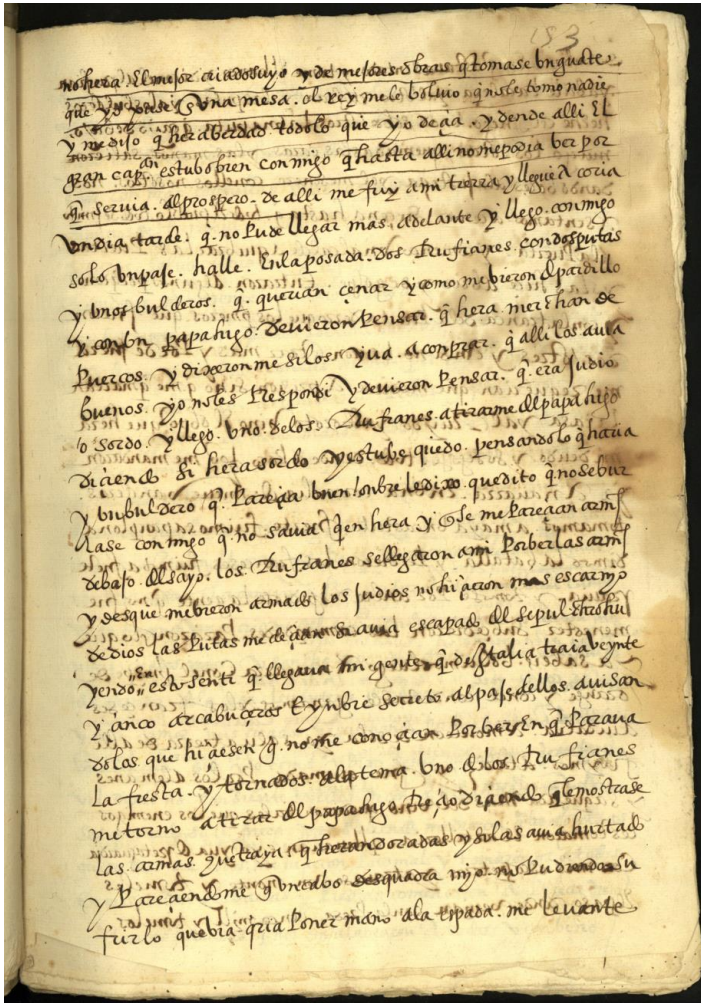 153
no hera El mejor criado suyo y de mejores obras q̃ tomase un guāte
que yo puse en una mesa. el rey me le bolvio q̃ no le tomo nadie
y me dijo q̃ hera berdad todo lo que yo deçia. y dende alli El
gran capᵃⁿ estubo bien conmigo q̃ hasta alli no me podia ver por
q̃ servia. al prospero. de alli me fuy a mi tierra y llegue A coria
un dia tarde. q̃. no pude llegar mas adelante y llego. conmigo
solo un paje. halle. En la posada. dos Rufianes. con dos putas
y unos bulderos. q̃. querian çenar y como me bieron El pardillo
y con un papahigo. devieron pensar. q̃ hera merchan de
puercos. y dixeron me si los. yva. a conprar. q̃ alli los avia
buenos. yo no les Respondi y devieron pensar. q̃. era judio
o sordo. y llego. uno. de los. Rufianes. a tirarme del papahijo
diçiendo si hera sordo yo estube quedo. pensando lo q̃ haria
y un buldero q̃. pareçia buen honbre le dixo. quedito q̃ no se bur
lase conmigo q̃. no savia quien hera y q̃ se me pareçian armˢ
debajo del sayo. los. Rufianes se llegaron a mi por ber las armˢ
y desque me bieron armado los judios no hiçieron mas escarnyo
de dios las putas me deçian si avia escapado del sepulchro hu
yendo En esto senti q̃. llegava mi gente q̃. de Italia traia veynte
y çinco arcabuçeros E ynbie secreto. al paje dellos. avisan
dolos que hiçiesen q̃. no me conoçian por ber En q̃ parava
la fiesta. y tornados. a la tema. uno de los. Rufianes
me torno a tirar del papahigo Reçio diçiendo q̃ le mostrase
las armas. q̃ traya q̃ heran doradas y si las avia hurtado
y pareçiendo me q̃ un cabo desquadra mjo. no pudiendo su
frirlo que via queria poner mano a la espada. me levante